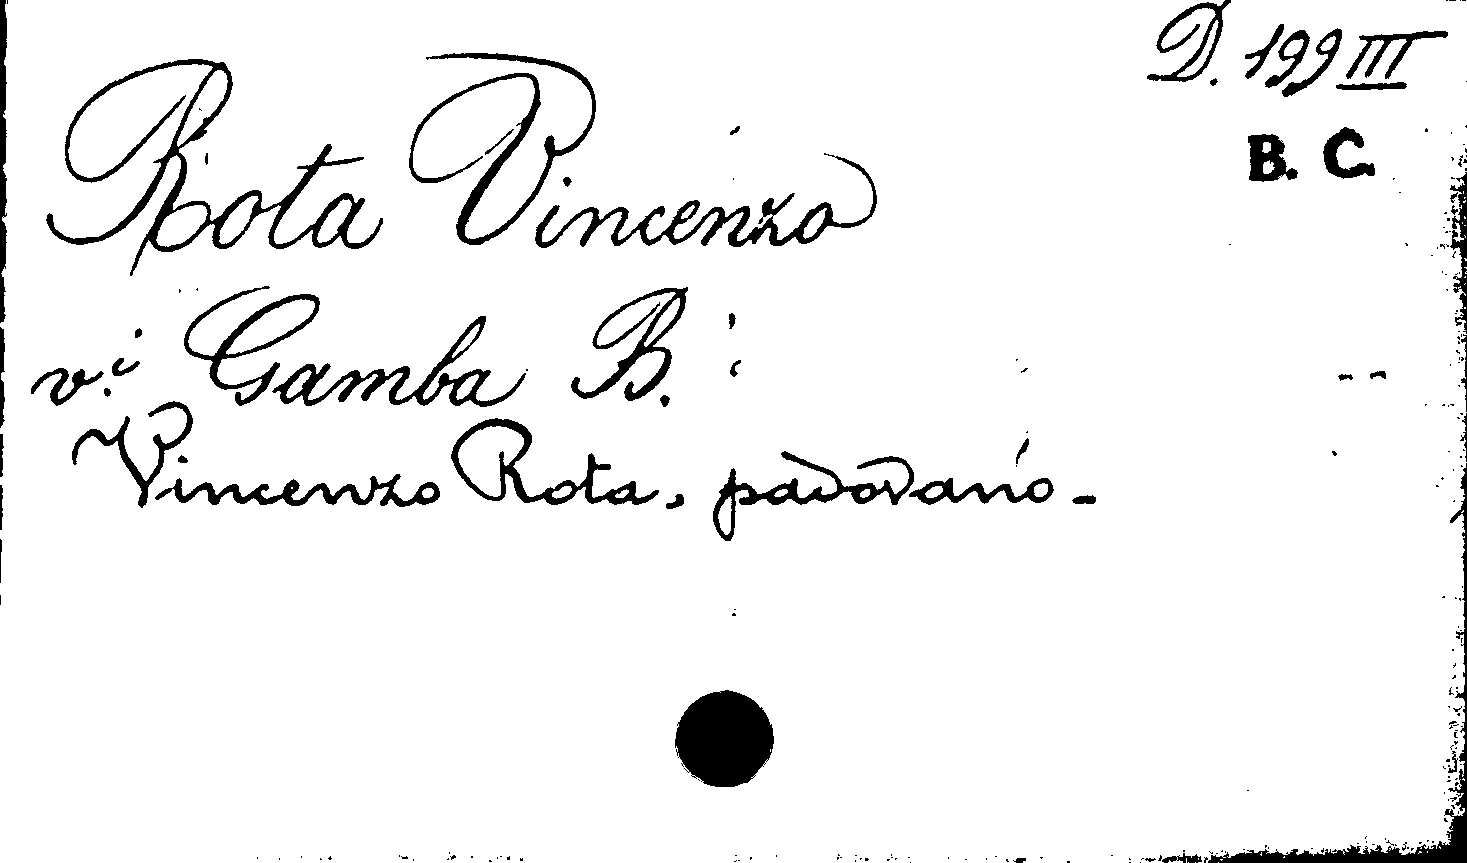 D. 199 III
B. C.
Rota Vincenzo
v.i Gamba B.
Vincenzo Rota, padovano -